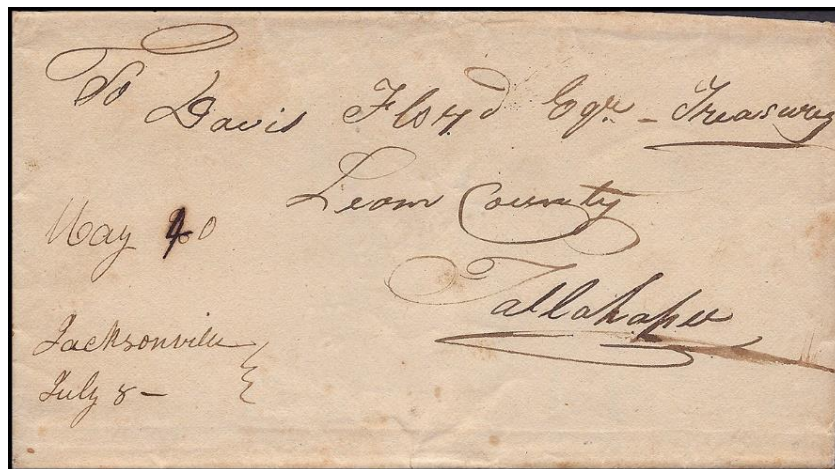 To Davis Floyd Esqr - Treasurer
Leon County
Tallahassee
May 40
Jacksonville
July 8 -